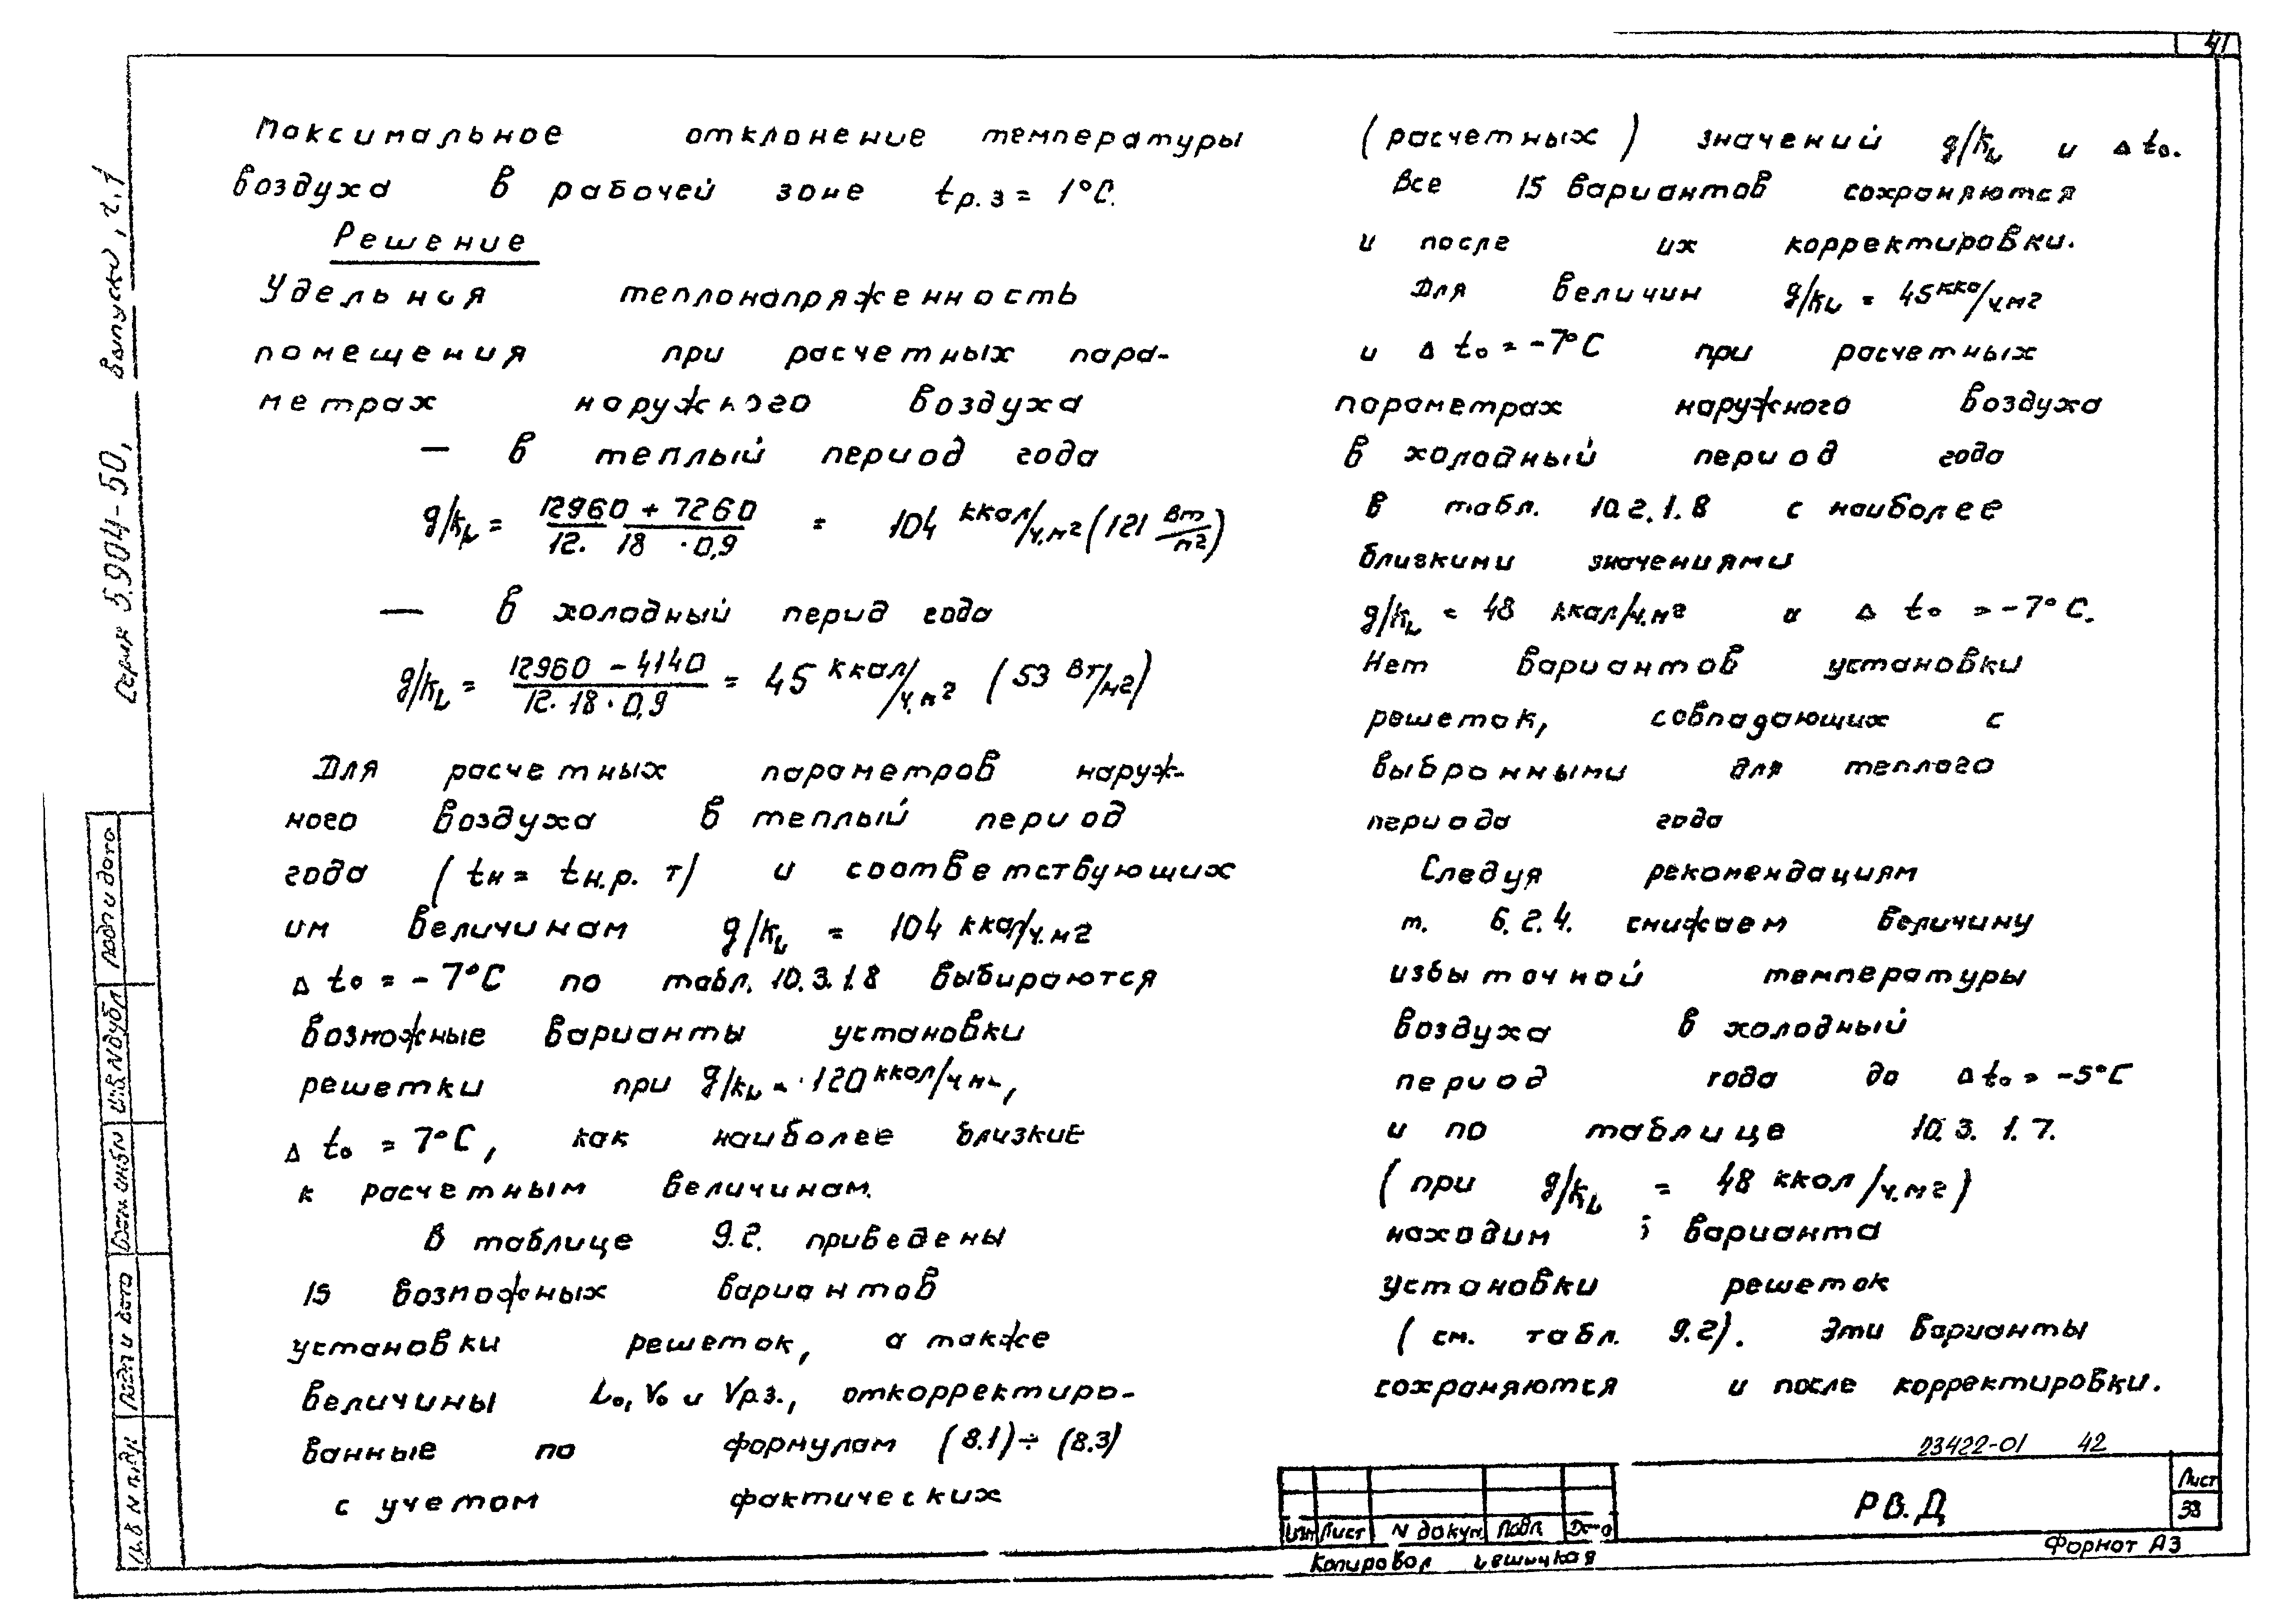 41
Максимальное отклонение температуры
воздуха в рабочей зоне tр.з = 1°С.
Решение
Удельная теплонапряженность
помещения при расчетных пара-
метрах наружного воздуха
— в теплый период года
g/kL = 12960 + 7260 / 12. 18 · 0,9 = 104 ккал/ч.м2 (121 Вт/м2)
— в холодный перид года
g/kL = 12960 - 4140 / 12. 18 · 0,9 = 45 ккал/ч.м2 (53 Вт/м2)
Для расчетных параметров наруж-
ного воздуха в теплый период
года (tн = tн.р. т) и соответствующих
им величинам g/kL = 104 ккал/ч.м2
Δ to = - 7°С по табл. 10.3.1.8 выбираются
возможные варианты установки
решетки при g/kL = 120 ккал/ч м2,
Δ to = 7°С, как наиболее близкие
к расчетным величинам.
В таблице 9.2. приведены
15 возможных вариантов
установки решеток, а также
величины Lo, Vo и Vр.з., откорректиро-
ванные по формулам (8.1) ÷ (8.3)
с учетом фактических
(расчетных) значений g/kL и Δ to.
Все 15 вариантов сохраняются
и после их корректировки.
Для величин g/kL = 45 ккал/ч.м2
и Δ to = -7°С при расчетных
параметрах наружного воздуха
в холодный период года
в табл. 10.2.1.8 с наиболее
близкими значениями
g/kL = 48 ккал/ч.м2 и Δ to = -7°С.
Нет вариантов установки
решеток, совпадающих с
выбранными для теплого
периода года
Следуя рекомендациям
т. 6.2.4. снижаем величину
избыточной температуры
воздуха в холодный
период года до Δ to = -5°С
и по таблице 10.3.1.7.
(при g/kL = 48 ккал/ч.м2)
находим варианта
установки решеток
(см. табл. 9.2). Эти варианты
сохраняются и после корректировки.
23422-01 42
РВ.Д
Лист
38
Изм Лист N докум Подп Дата
Копировал
Формат А3
Серия 5.904-50, Выпуск 0, ч.1
Подп и дата
Инв N дубл
Взам инв N
Подп и дата
Инв N подл